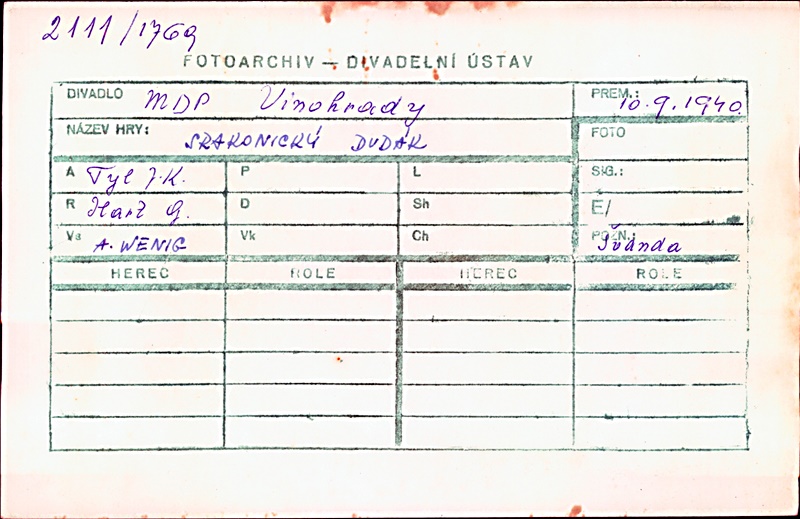 2111/1769
FOTOARCHIV – DIVADELNÍ ÚSTAV
DIVADLO MDP Vinohrady PREM.: 10.9.1940
NÁZEV HRY: SRAKONICKÝ DUDÁK FOTO
A Tyl J.K. P L SIG.:
R Hart G. D Sh E/
Vs A. WENIG Vk Ch POZN.: Švanda
HEREC ROLE HEREC ROLE